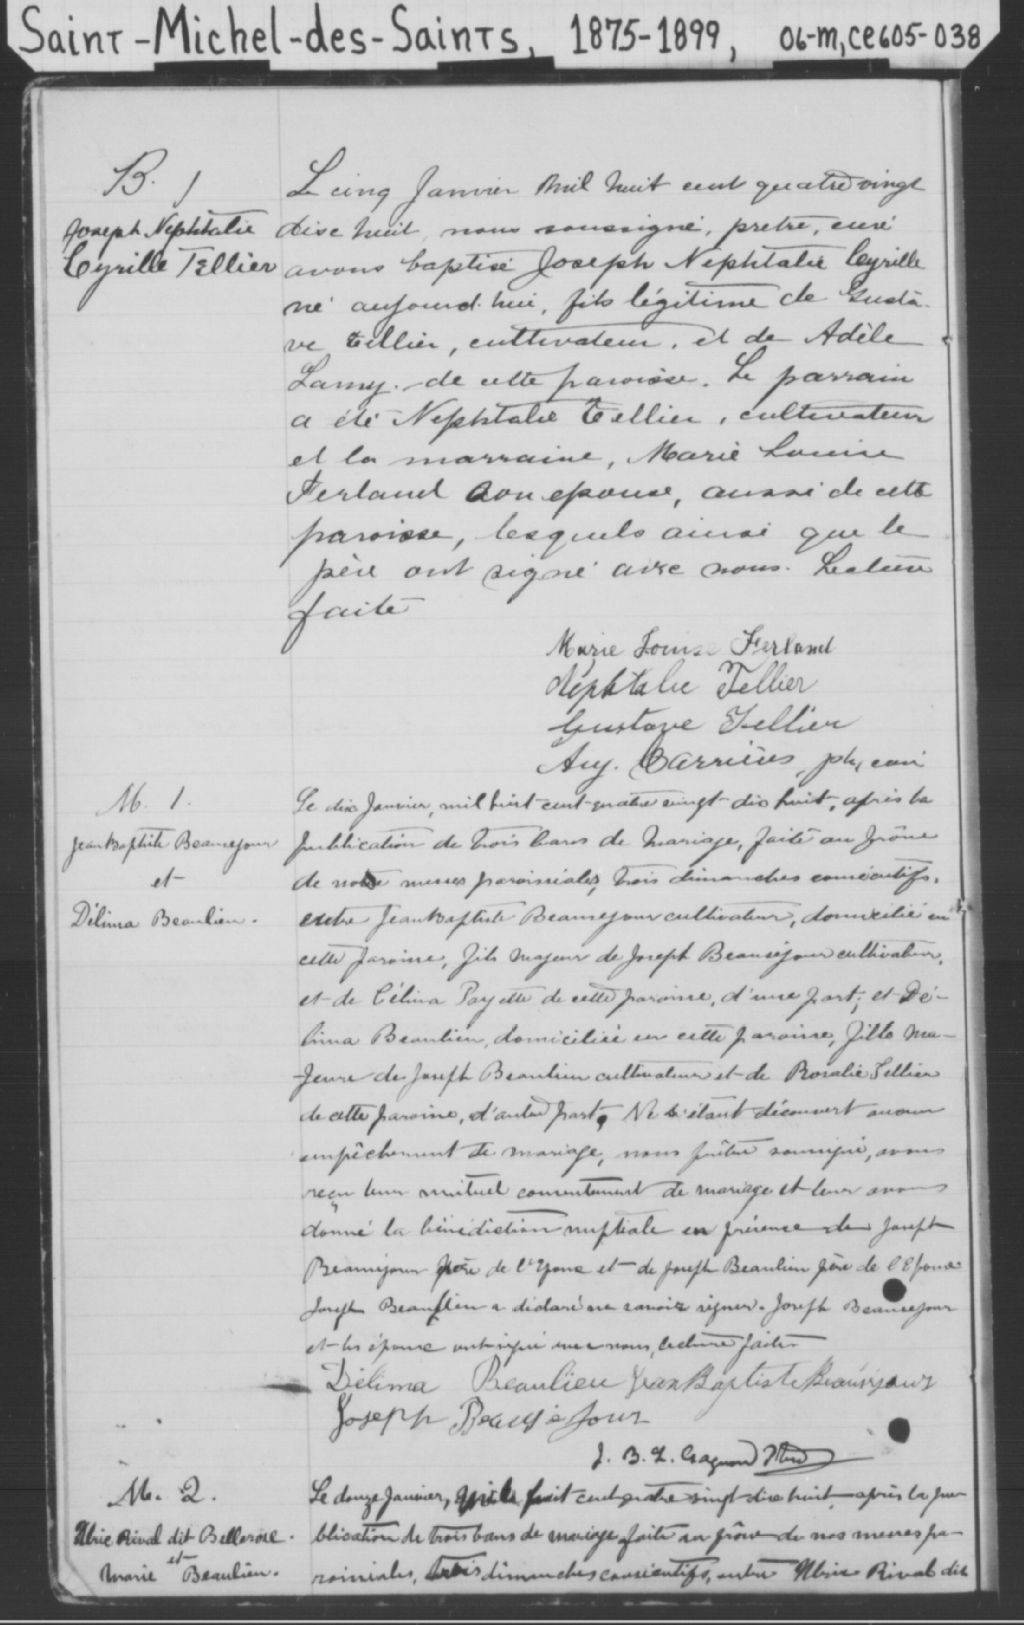 Saint-Michel-des-Saints, 1875-1899, 06-m, ce605-038
B. 1
Joseph Nephtalie
Cyrille Tellier
Le cinq Janvier mil huit cent quatre vingt
dixe huit, nous soussigné, pretre, curé
avons baptisé Joseph Nephtalie Cyrille
né aujourd'hui, fils légitime de Gusta-
ve Tellier, cultivateur, et de Adèle
Lamy, de cette paroisse. Le parrain
a été Nephtalie Tellier, cultivateur
et la marraine, Marie Louise
Ferland son epouse, aussi de cette
paroisse, lesquels ainsi que le
père ont signé avec nous. Lecture
faite
Marie Louise Ferland
Nephtalie Tellier
Gustave Tellier
Aug. Carrières, ptr, curé
M. 1.
Jean Baptiste Beausejour
et
Délima Beaulieu.
Le dix Janvier, mil huit cent quatre vingt dix huit, après la
publication de trois bans de mariage, faite au prône
de nos messes paroissiales, trois dimanches consécutifs,
entre Jean Baptiste Beausejour cultivateur, domicilié en
cette paroisse, fils majeur de Joseph Beauséjour cultivateur,
et de Célina Payette de cette paroisse, d'une part; et Dé-
lima Beaulieu, domiciliée en cette paroisse, fille ma-
jeure de Joseph Beaulieu cultivateur et de Rosalie Tellier
de cette paroisse, d'autre part, Ne s'étant découvert aucun
empêchement de mariage, nous prêtre soussigné, avons
reçu leur mutuel consentement de mariage et leur avons
donné la bénédiction nuptiale en présence de Joseph
Beausejour père de l'Epoux et de Joseph Beaulieu père de l'Epouse
Joseph Beaulieu a déclaré ne savoir signer. Joseph Beausejour
et les époux ont signé avec nous, lecture faite
Délima Beaulieu Jean Baptiste Beauséjour
Joseph Beauséjour
J. B. L. Gagnon Ptre
M. 2.
Ulric Rival dit Bellerose.
et
Marie Beaulieu.
Le douze Janvier, mil huit cent quatre vingt dix huit, après la pu-
blication de trois bans de mariage faite au prône de nos messes pa-
roissiales, trois dimanches consécutifs, entre Ulric Rival dit